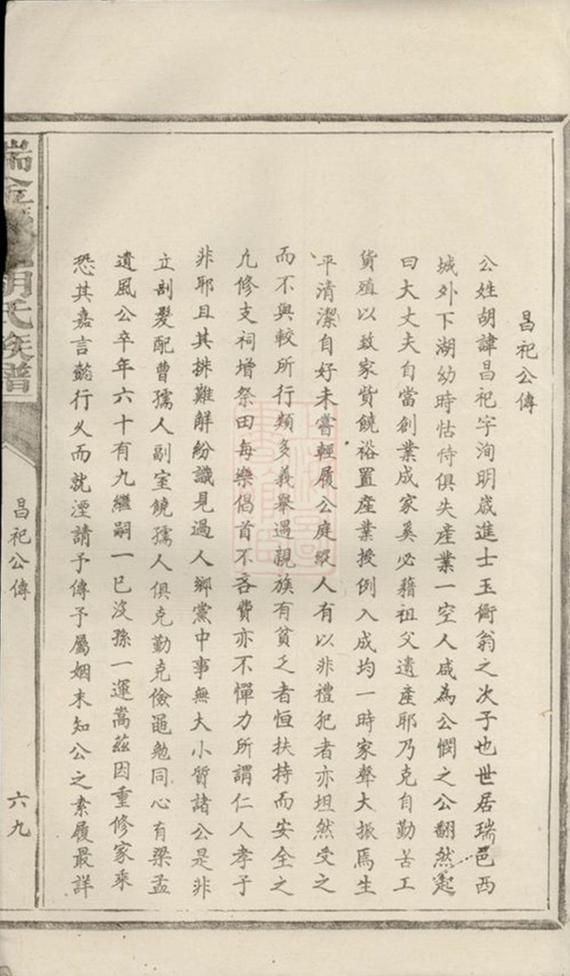 昌祀公傳
公姓胡諱昌祀字洵明歲進士玉衡翁之次子也世居瑞邑西
城外下湖幼時怙恃俱失產業一空人咸為公憫之公翻然起
曰大丈夫自當創業成家奚必藉祖父遺產耶乃克自勤苦工
貨殖以致家貲饒裕置產業援例入成均一時家聲大振焉生
平清潔自好未嘗輕履公庭縱人有以非禮犯者亦坦然受之
而不與較所行頗多義舉遇親族有貧乏者恒扶持而安全之
凢修支祠增祭田每樂倡首不吝費亦不憚力所謂仁人孝子
非耶且其排難解紛識見過人鄉黨中事無大小質諸公是非
立剖髮配曹孺人副室饒孺人俱克勤克儉黽勉同心有梁孟
遺風公卒年六十有九繼嗣一已沒孫一運嵩茲因重修家乘
恐其嘉言懿行久而就湮請予傳予屬姻末知公之素履最詳
瑞金
胡氏族譜
昌祀公傳
六九